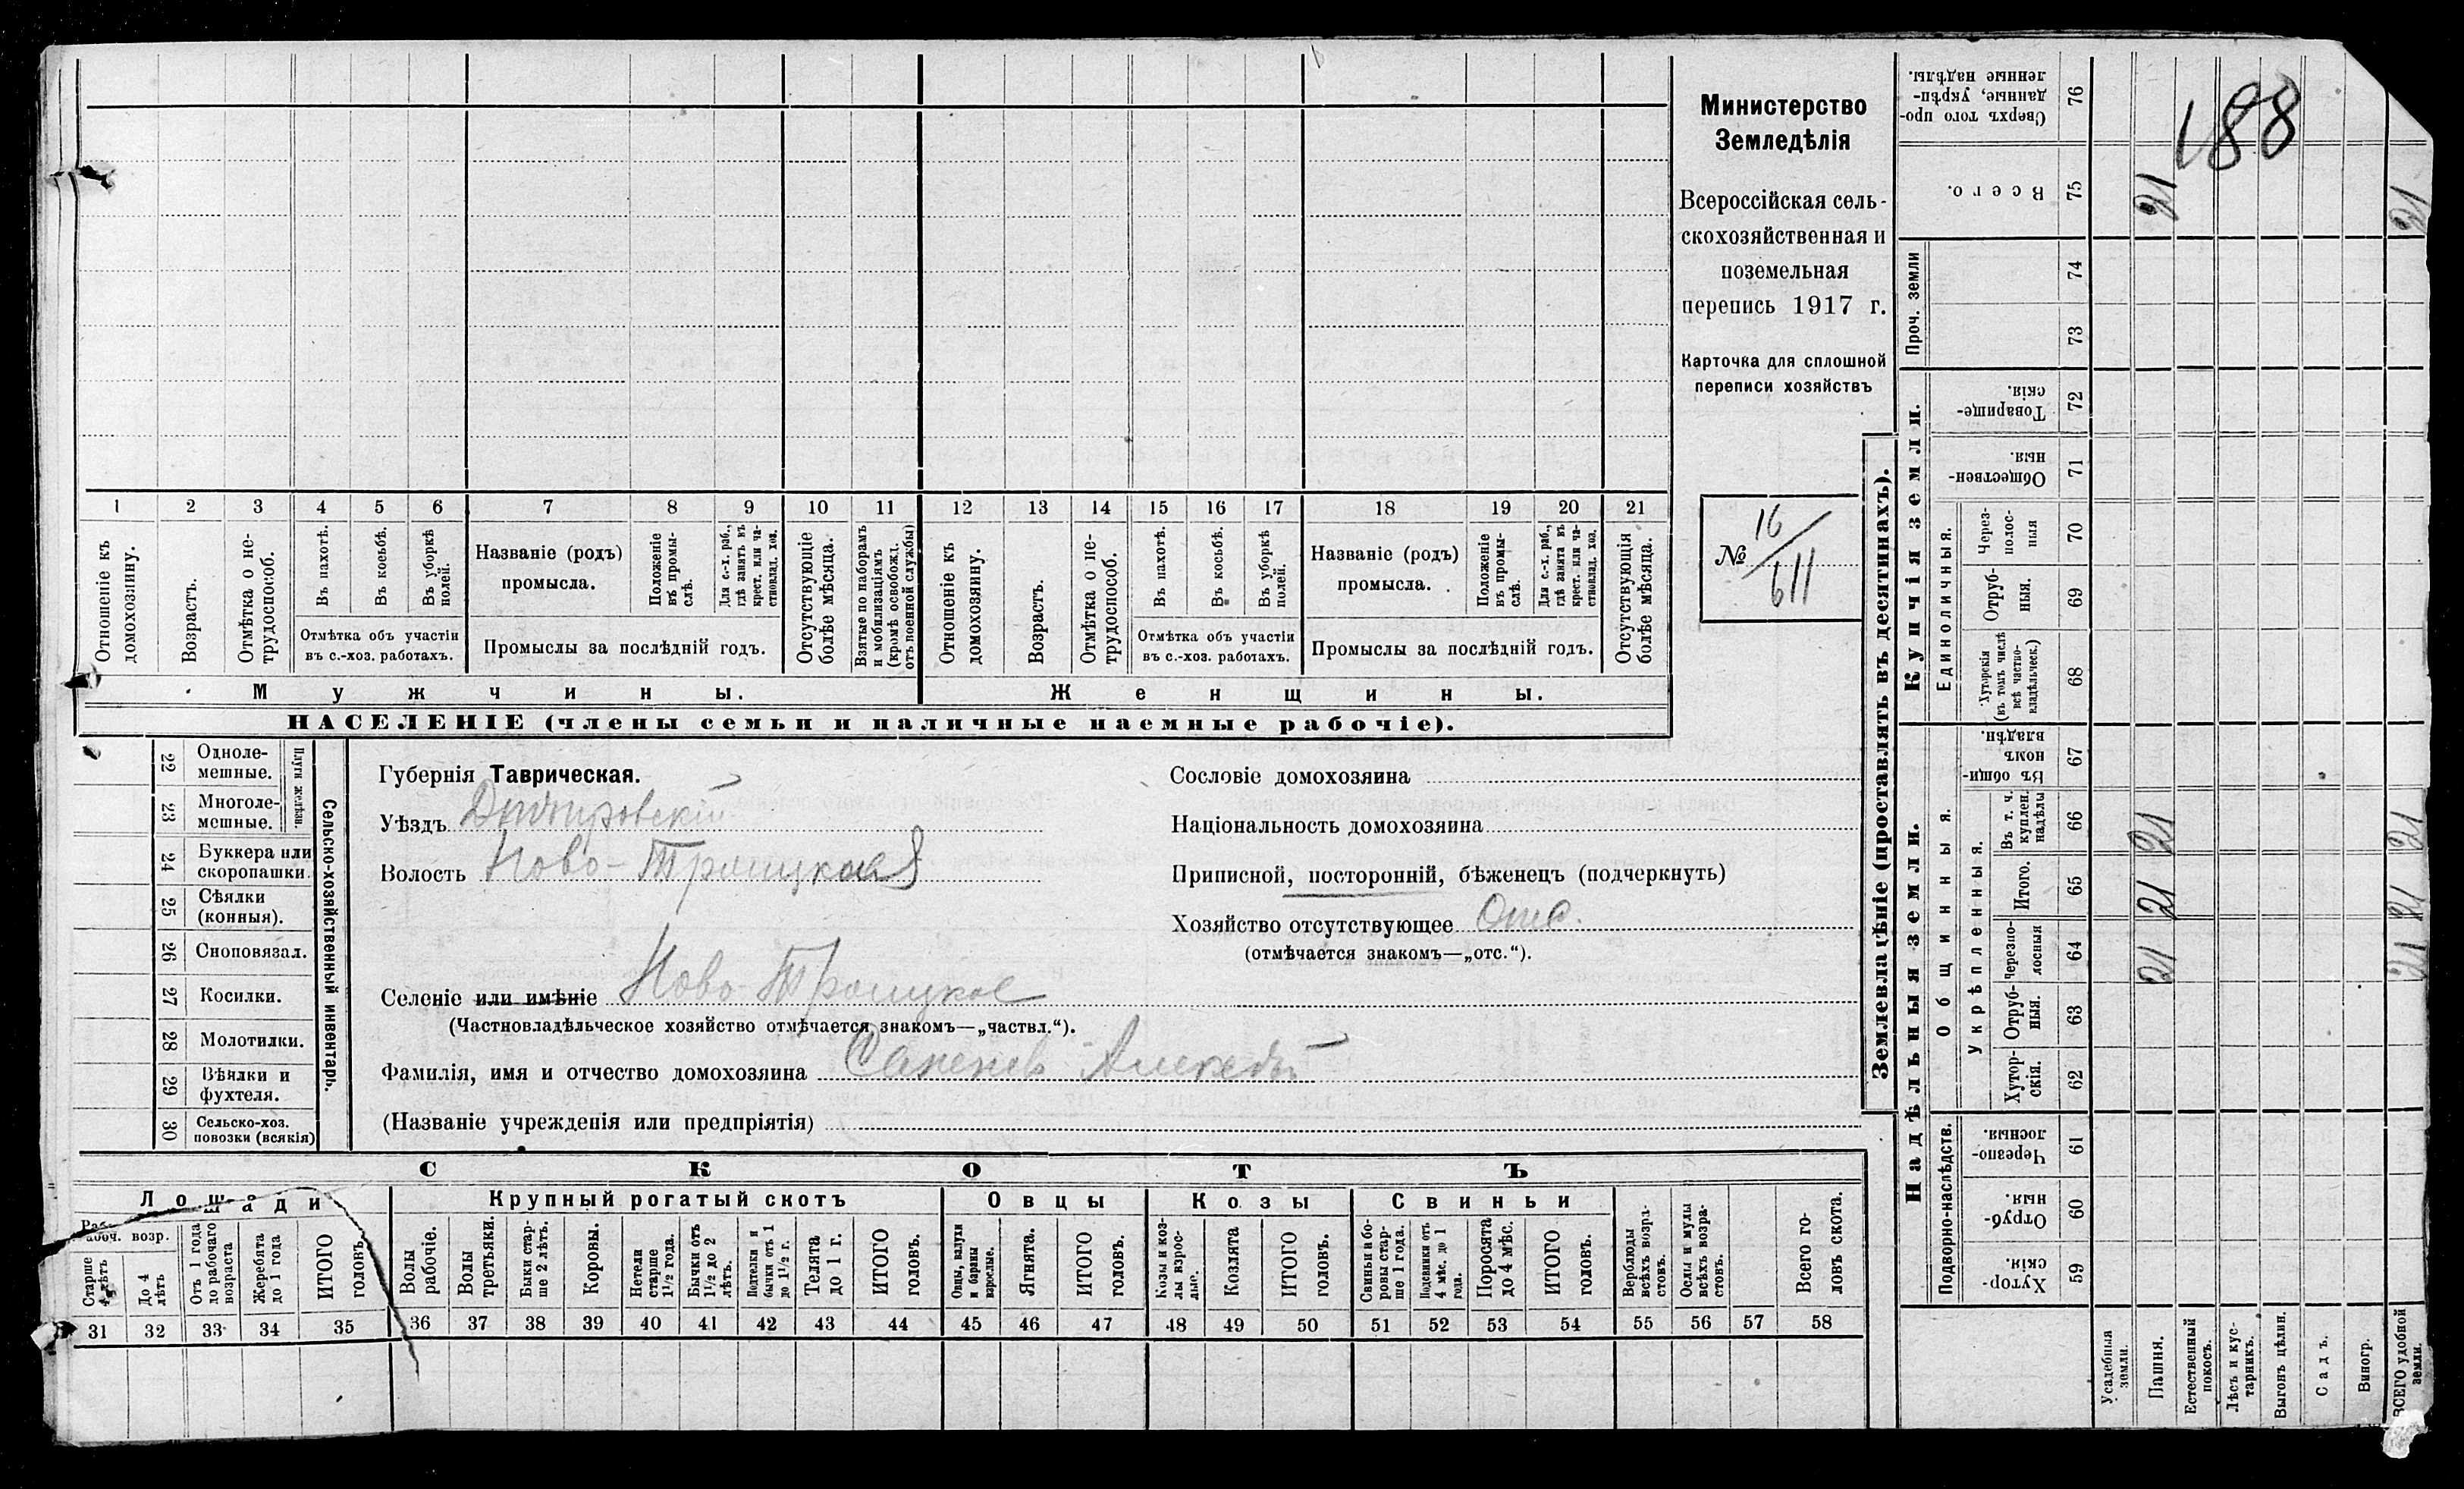 Министерство
Земледѣлія
Всероссійская сель-
скохозяйственная и
поземельная
перепись 1917 г.
Карточка для сплошной
переписи хозяйствъ
№ 16/611
188
1 2 3 4 5 6 7 8 9 10 11 12 13 14 15 16 17 18 19 20 21
Отношеніе къ домохозяину.
Возрастъ.
Отмѣтка о не-трудоспособ.
Въ пахотѣ.
Въ косьбѣ.
Въ уборкѣ полей.
Отмѣтка объ участіи
въ с.-хоз. работахъ.
Названіе (родъ)
промысла.
Положеніе въ промы-слѣ.
Для с.-х. раб., гдѣ занятъ въ крест. или ча-стновлад. хоз.
Промыслы за послѣдній годъ.
Отсутствующіе болѣе мѣсяца.
Взятые по наборамъ и мобилизаціямъ (кромѣ освобожд. отъ военной службы)
Отношеніе къ домохозяину.
Возрастъ.
Отмѣтка о не-трудоспособ.
Въ пахотѣ.
Въ косьбѣ.
Въ уборкѣ полей.
Отмѣтка объ участіи
въ с.-хоз. работахъ.
Названіе (родъ)
промысла.
Положеніе въ промы-слѣ.
Для с.-х. раб., гдѣ занята въ крест. или ча-стновлад. хоз.
Промыслы за послѣдній годъ.
Отсутствующія болѣе мѣсяца.
Мужчины.
Женщины.
НАСЕЛЕНІЕ (члены семьи и наличные наемные рабочіе).
22 Одноле-мешные.
23 Многоле-мешные.
Плуги желѣзн.
24 Буккера или скоропашки.
25 Сѣялки (конныя).
26 Сноповязал.
27 Косилки.
28 Молотилки.
29 Вѣялки и фухтеля.
30 Сельско-хоз. повозки (всякія)
Сельско-хозяйственный инвентарь.
Губернія Таврическая.
Уѣздъ Днѣпровскій
Волость Ново-Троицкая
Селеніе или имѣніе Ново-Троицкое
(Частновладѣльческое хозяйство отмѣчается знакомъ—„частвл.“).
Фамилія, имя и отчество домохозяина Алексѣй
(Названіе учрежденія или предпріятія)
Сословіе домохозяина
Національность домохозяина
Приписной, посторонній, бѣженецъ (подчеркнуть)
Хозяйство отсутствующее Отс.
(отмѣчается знакомъ—„отс.“).
СКОТЪ
Лошади
Рабоч. возр.
Старше 4 лѣтъ
До 4 лѣтъ
Отъ 1 года до рабочаго возраста
Жеребята до 1 года
ИТОГО головъ.
Крупный рогатый скотъ
Волы рабочіе.
Волы третьяки.
Быки стар-ше 2 лѣтъ.
Коровы.
Нетели старше 1½ года.
Бычки отъ 1½ до 2 лѣтъ.
Подтелки и бычки отъ 1 до 1½ г.
Телята до 1 г.
ИТОГО головъ.
Овцы
Овцы, валухи и бараны взрослые.
Ягнята.
ИТОГО головъ.
Козы
Козы и коз-лы взрос-лые.
Козлята
ИТОГО головъ.
Свиньи
Свиньи и бо-ровы стар-ше 1 года.
Подсвинки отъ 4 мѣс. до 1 года.
Поросята до 4 мѣс.
ИТОГО головъ.
Верблюды всѣхъ возра-стовъ.
Ослы и мулы всѣхъ возра-стовъ.
Всего го-ловъ скота.
31 32 33 34 35 36 37 38 39 40 41 42 43 44 45 46 47 48 49 50 51 52 53 54 55 56 57 58
Землевладѣніе (проставлять въ десятинахъ).
Надѣльныя земли.
Подворно-наслѣдств.
Хутор-скія. 59
Отруб-ныя. 60
Черезпо-лосныя. 61
Общинныя.
Укрѣпленныя.
Хутор-скія. 62
Отруб-ныя. 63
Черезпо-лосныя 64 21 21
Итого. 65 21 21
Въ т. ч. куплен. надѣлы 66 21 21
Въ общи-номъ владѣн. 67
Купчія земли.
Единоличныя.
Хуторскія (въ томъ числѣ всѣ частно-владѣльческ.) 68
Отруб-ныя. 69
Через-полос-ныя 70
Обществен-ныя. 71
Товарище-скія. 72
Проч. земли
73
74
Всего. 75 21 21
Сверхъ того про-данные, укрѣп-ленные надѣлы. 76
Усадебныя земли.
Пашня.
Естественный покосъ.
Лѣсъ и кус-тарникъ.
Выгонъ цѣлин.
Садъ.
Виногр.
ВСЕГО удобной земли.